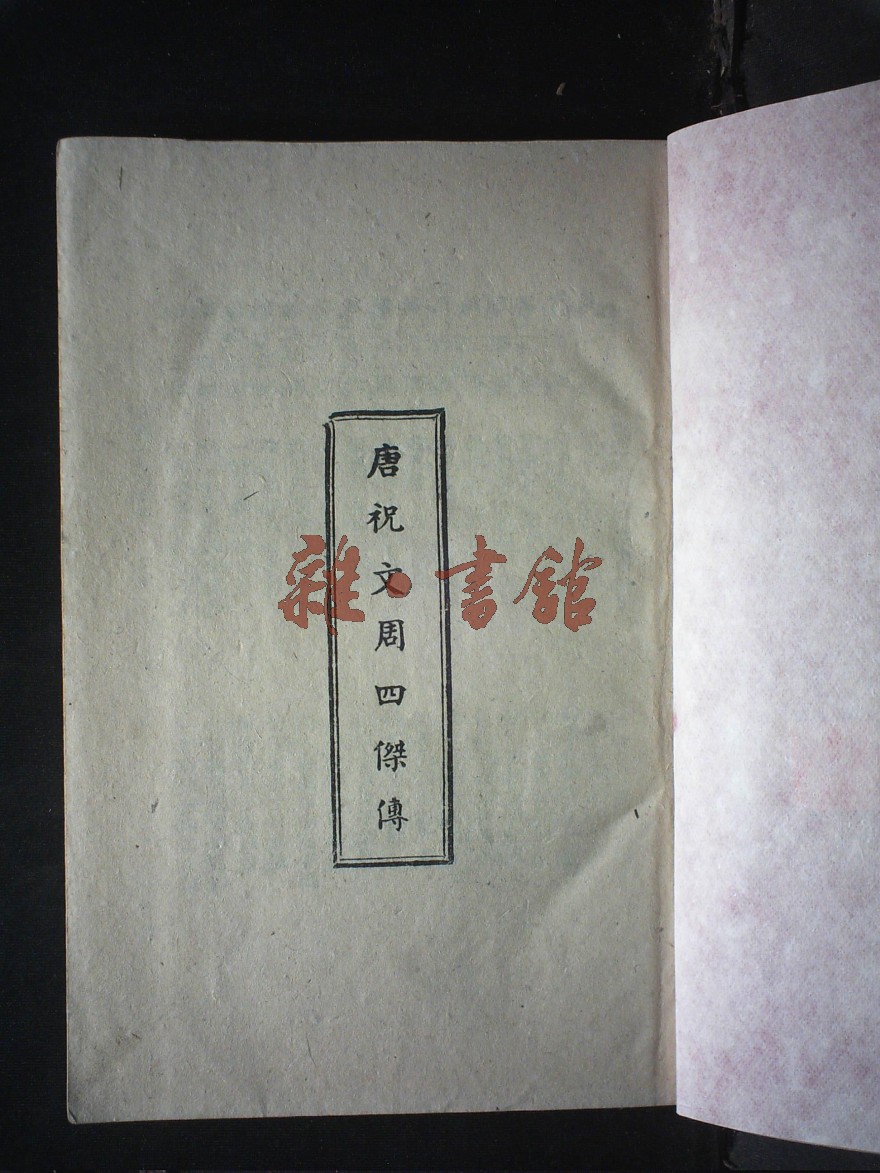 唐祝文周四傑傳
雜·書館